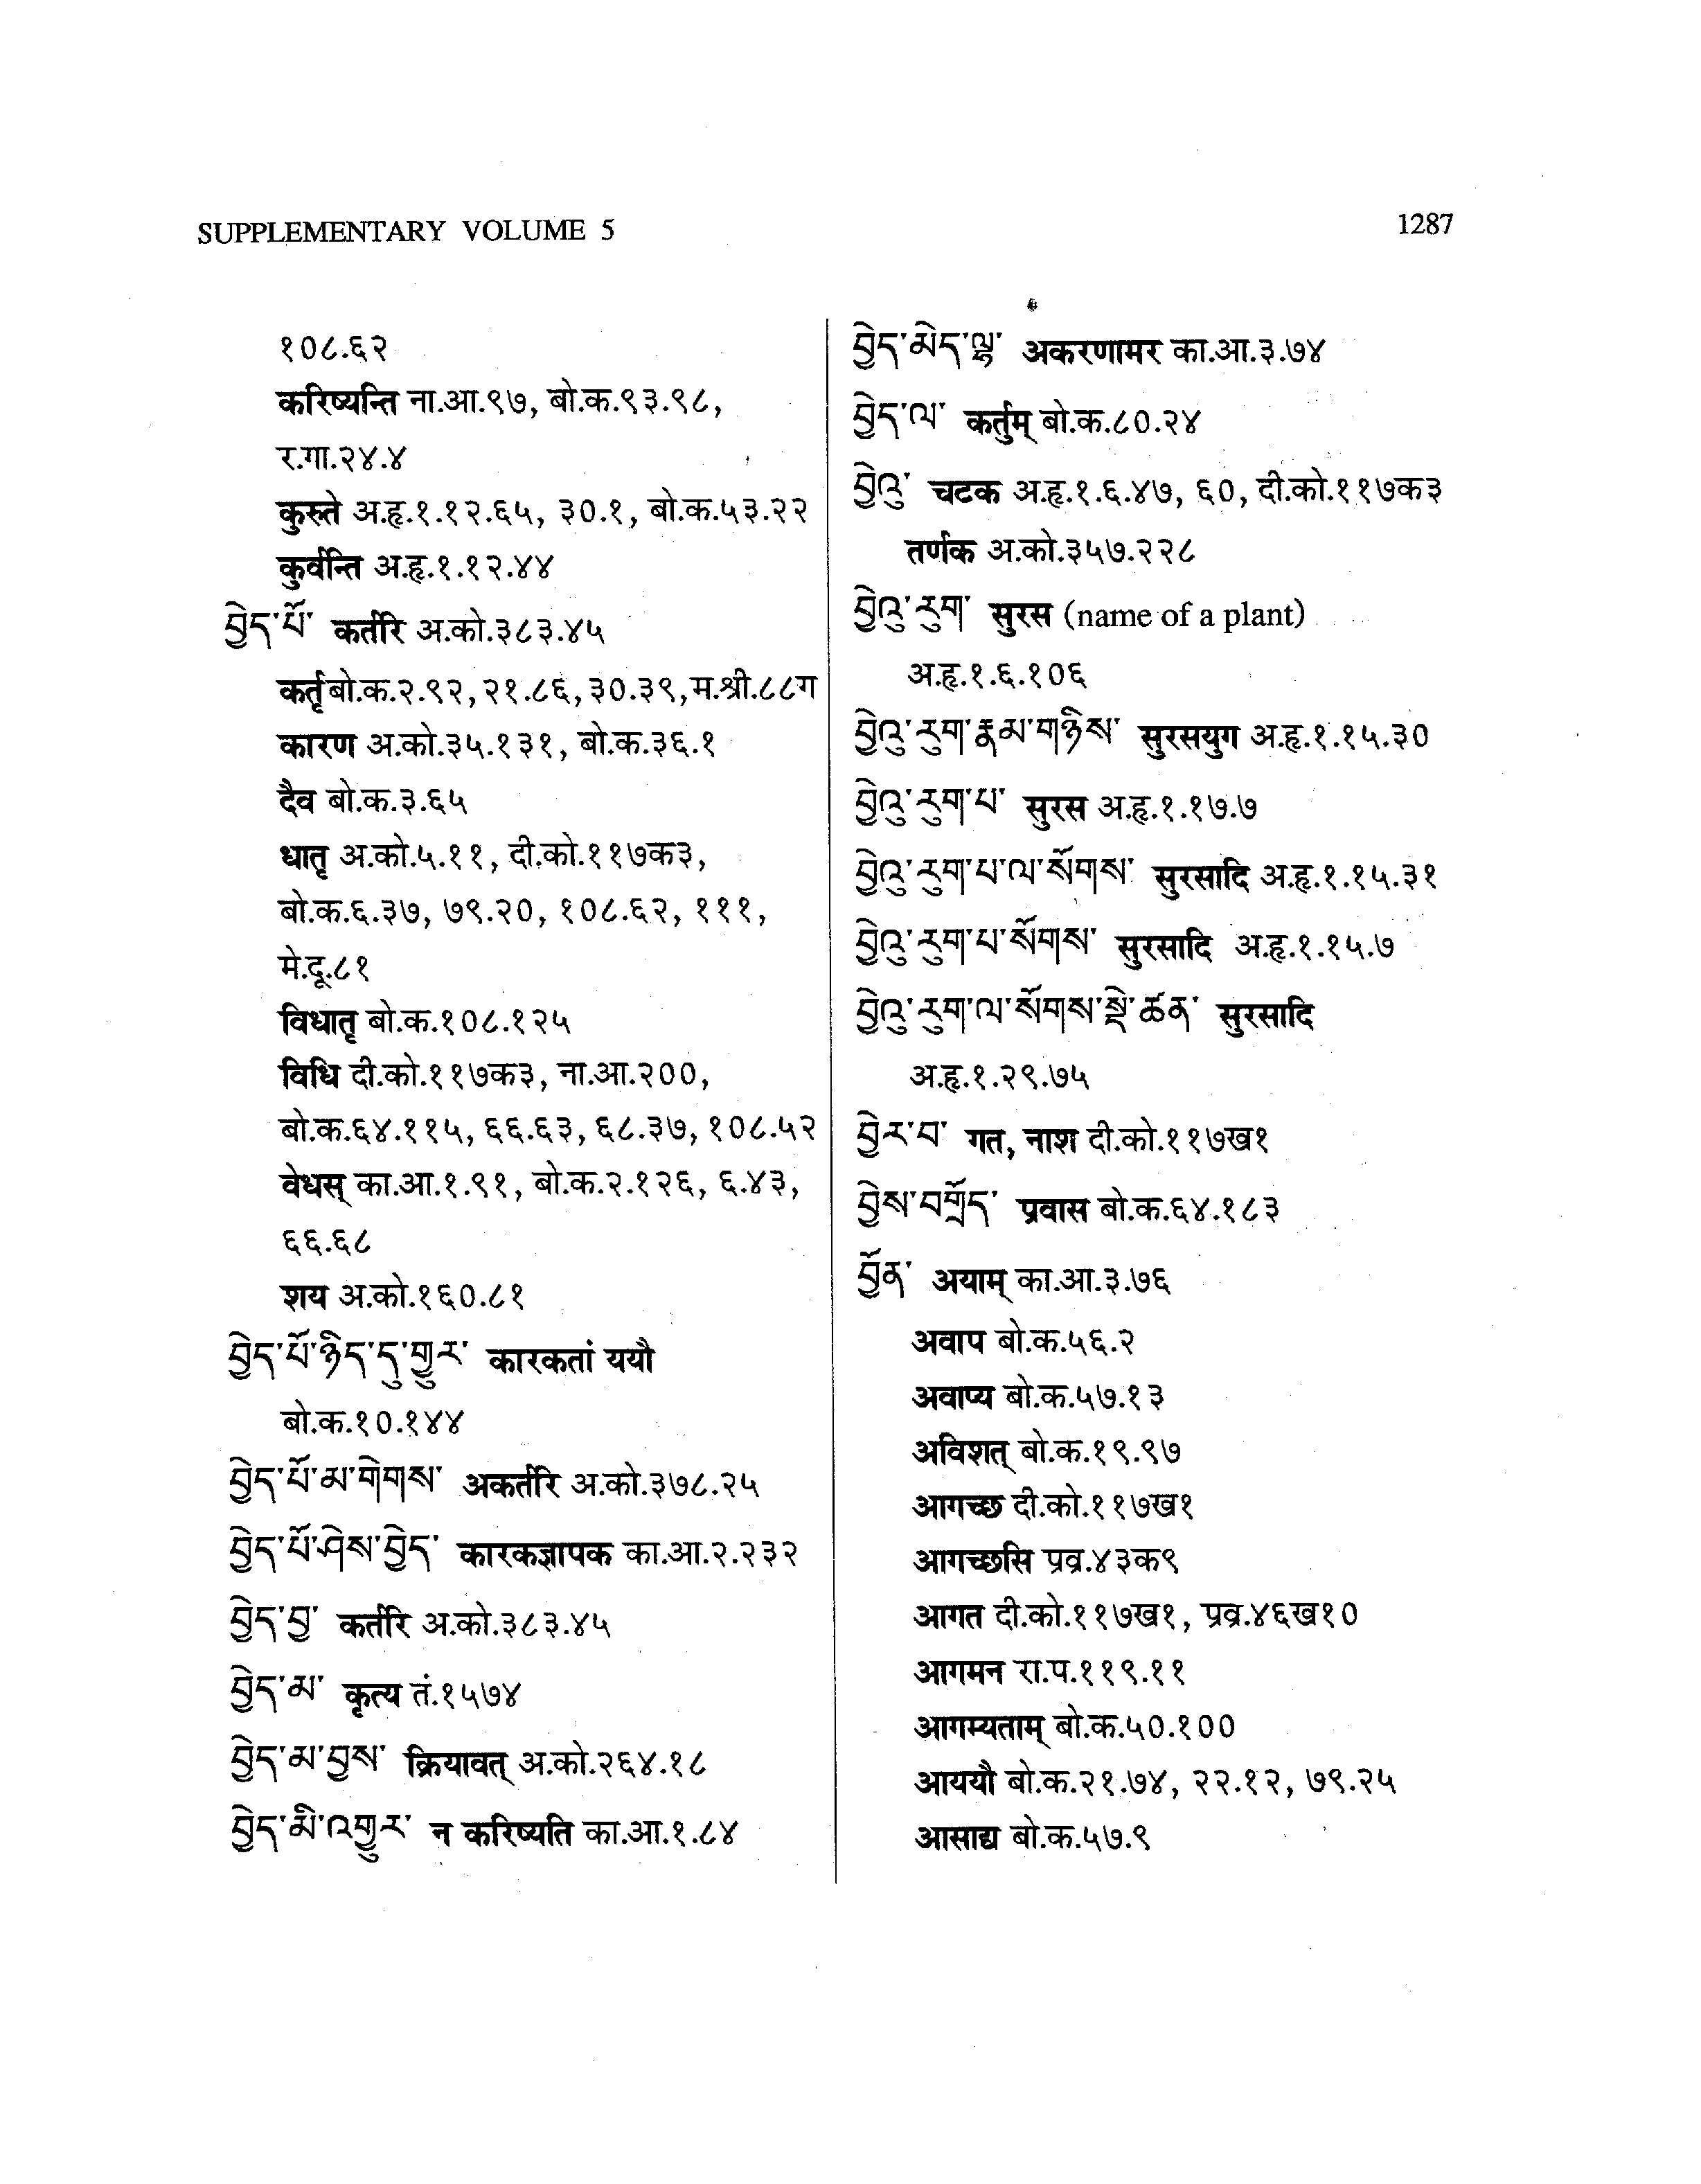 SUPPLEMENTARY VOLUME 5
1287
१०८.६२
करिष्यन्ति ना.आ.९७, बो.क.९३.९८,
र.गा.२४.४
कुरुते अ.हृ.१.१२.६५, ३०.१, बो.क.५३.२२
कुर्वन्ति अ.हृ.१.१२.४४
བྱེད་པོ་ कर्तरि अ.को.३८३.४५
कर्तृ बो.क.२.९२, २१.८६, ३०.३९, म.श्री.८८ग
कारण अ.को.३५.१३१, बो.क.३६.१
दैव बो.क.३.६५
धातृ अ.को.५.११, दी.को.११७क३,
बो.क.६.३७, ७९.२०, १०८.६२, १११,
मे.दू.८१
विधातृ बो.क.१०८.१२५
विधि दी.को.११७क३, ना.आ.२००,
बो.क.६४.११५, ६६.६३, ६८.३७, १०८.५२
वेधस् का.आ.१.९१, बो.क.२.१२६, ६.४३,
६६.६८
शय अ.को.१६०.८१
བྱེད་པོ་ཉིད་དུ་གྱུར་ कारकतां ययौ
बो.क.१०.१४४
བྱེད་པོ་མ་གེགས་ अकर्तरि अ.को.३७८.२५
བྱེད་པོ་ཤེས་བྱེད་ कारकज्ञापक का.आ.२.२३२
བྱེད་བྱ་ कर्तरि अ.को.३८३.४५
བྱེད་མ་ कृत्य तं.१५७४
བྱེད་མ་བྱས་ क्रियावत् अ.को.२६४.१८
བྱེད་མི་འགྱུར་ न करिष्यति का.आ.१.८४
བྱེད་མེད་ལྷ་ अकरणामर का.आ.३.७४
བྱེད་ལ་ कर्तुम् बो.क.८०.२४
བྱེའུ་ चटक अ.हृ.१.६.४७, ६०, दी.को.११७क३
तर्णक अ.को.३५७.२२८
བྱེའུ་རུག་ सुरस (name of a plant)
अ.हृ.१.६.१०६
བྱེའུ་རུག་རྣམ་གཉིས་ सुरसयुग अ.हृ.१.१५.३०
བྱེའུ་རུག་པ་ सुरस अ.हृ.१.१७.७
བྱེའུ་རུག་པ་ལ་སོགས་ सुरसादि अ.हृ.१.१५.३१
བྱེའུ་རུག་པ་སོགས་ सुरसादि अ.हृ.१.१५.७
བྱེའུ་རུག་ལ་སོགས་སྡེ་ཚན་ सुरसादि
अ.हृ.१.२९.७५
བྱེར་བ་ गत, नाश दी.को.११७ख१
བྱེས་བགྲོད་ प्रवास बो.क.६४.१८३
བྱོན་ अयाम् का.आ.३.७६
अवाप बो.क.५६.२
अवाप्य बो.क.५७.१३
अविशत् बो.क.१९.९७
आगच्छ दी.को.११७ख१
आगच्छसि प्रव्र.४३क९
आगत दी.को.११७ख१, प्रव्र.४६ख१०
आगमन रा.प.११९.११
आगम्यताम् बो.क.५०.१००
आययौ बो.क.२१.७४, २२.१२, ७९.२५
आसाद्य बो.क.५७.९